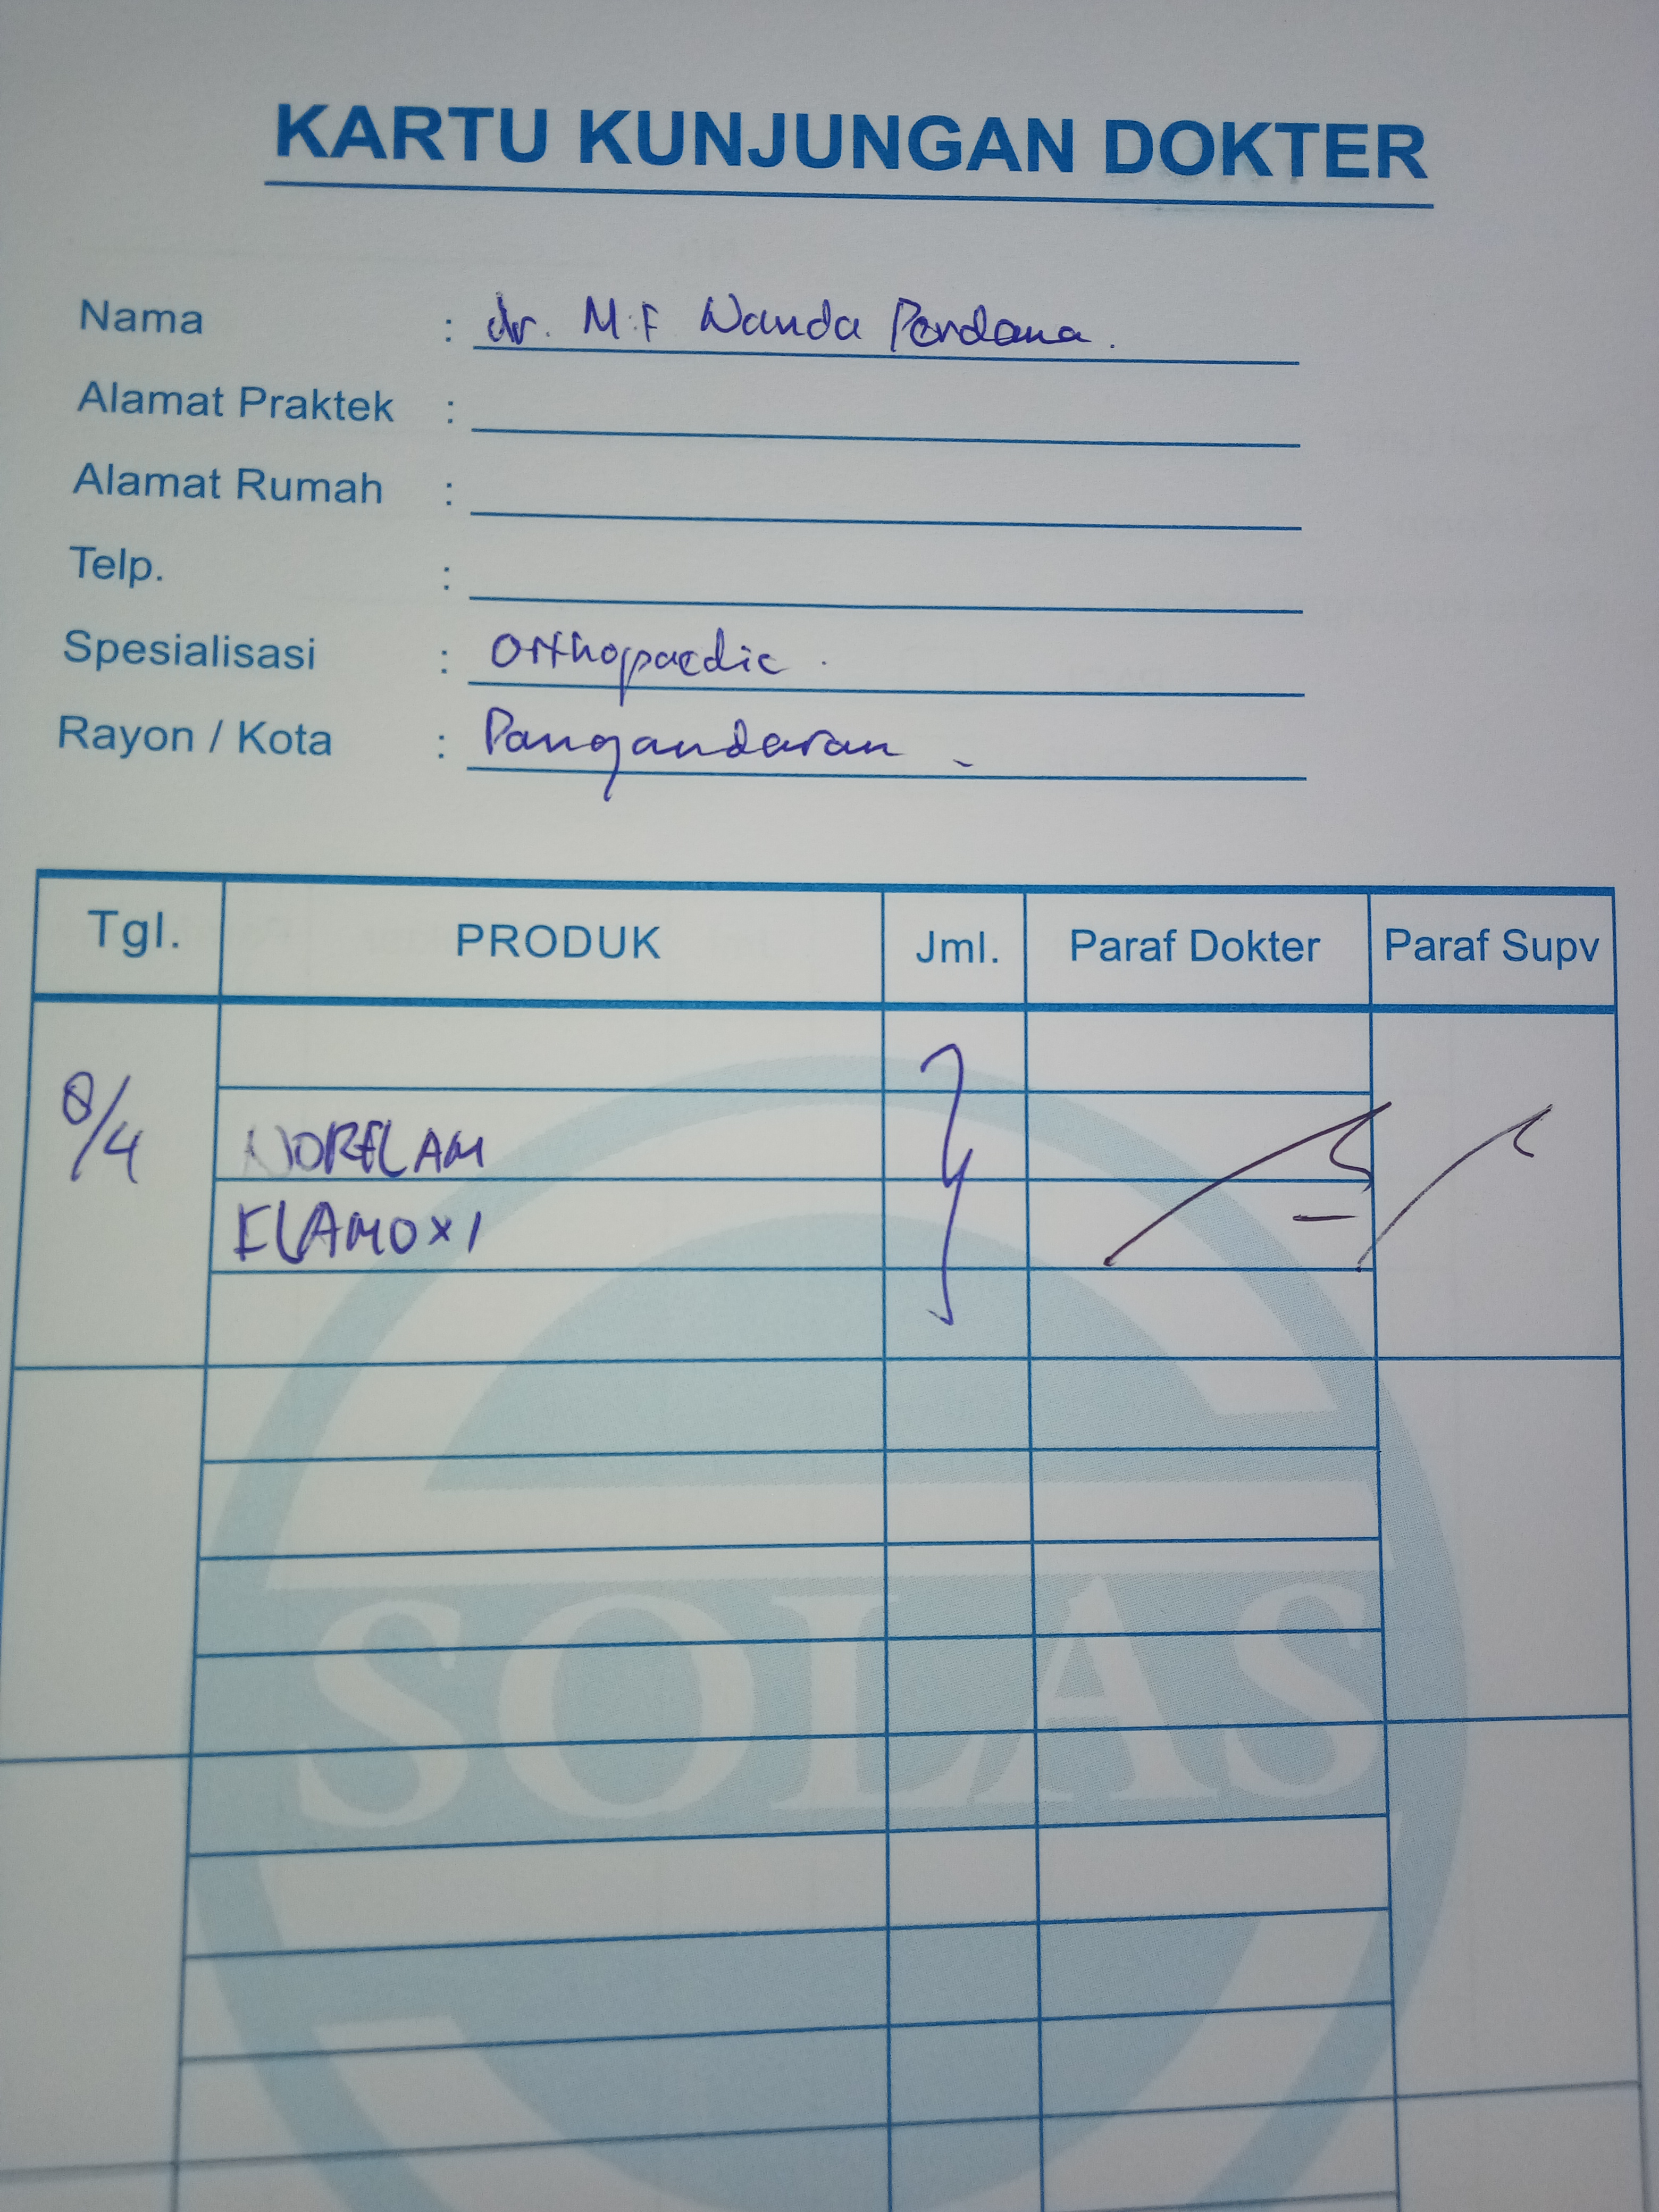 KARTU KUNJUNGAN DOKTER
Nama : dr. M.F Nanda Perdana.
Alamat Praktek :
Alamat Rumah :
Telp. :
Spesialisasi : Orthopaedic.
Rayon / Kota : Pangandaran -
Tgl. PRODUK Jml. Paraf Dokter Paraf Supv
8/4 NORFLAM
FLAMOXI
SOLAS